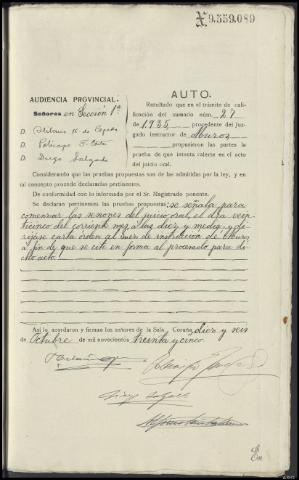 9.559.089
AUTO.
AUDIENCIA PROVINCIAL.
Señores en Sección 1ª
D.
D.
D. Diego Salgado
Resultado que en el trámite de cali-
ficación del sumario núm. 27 de
1935 procedente del Juz-
gado instructor de Muros
propusieron las partes la
prueba de que intenta valerse en el acto
del juicio oral.
Considerando que las pruebas propuestas son de las admitidas por la ley, y en
tal concepto procede declararlas pertinentes.
De conformidad con lo informado por el Sr. Magistrado ponente.
Se declaran pertinentes las pruebas propuestas; se señala para
comenzar las sesiones del juicio oral, el día vein-
ticinco del corriente mes a las diez y media, y di-
ríjase carta orden al Juez de instrucción de Muros
a fin de que se cite en forma al procesado para di-
cho acto.
Así lo acordaron y firman los señores de la Sala. Coruña diez y seis
de Octubre de mil novecientos treinta y cinco